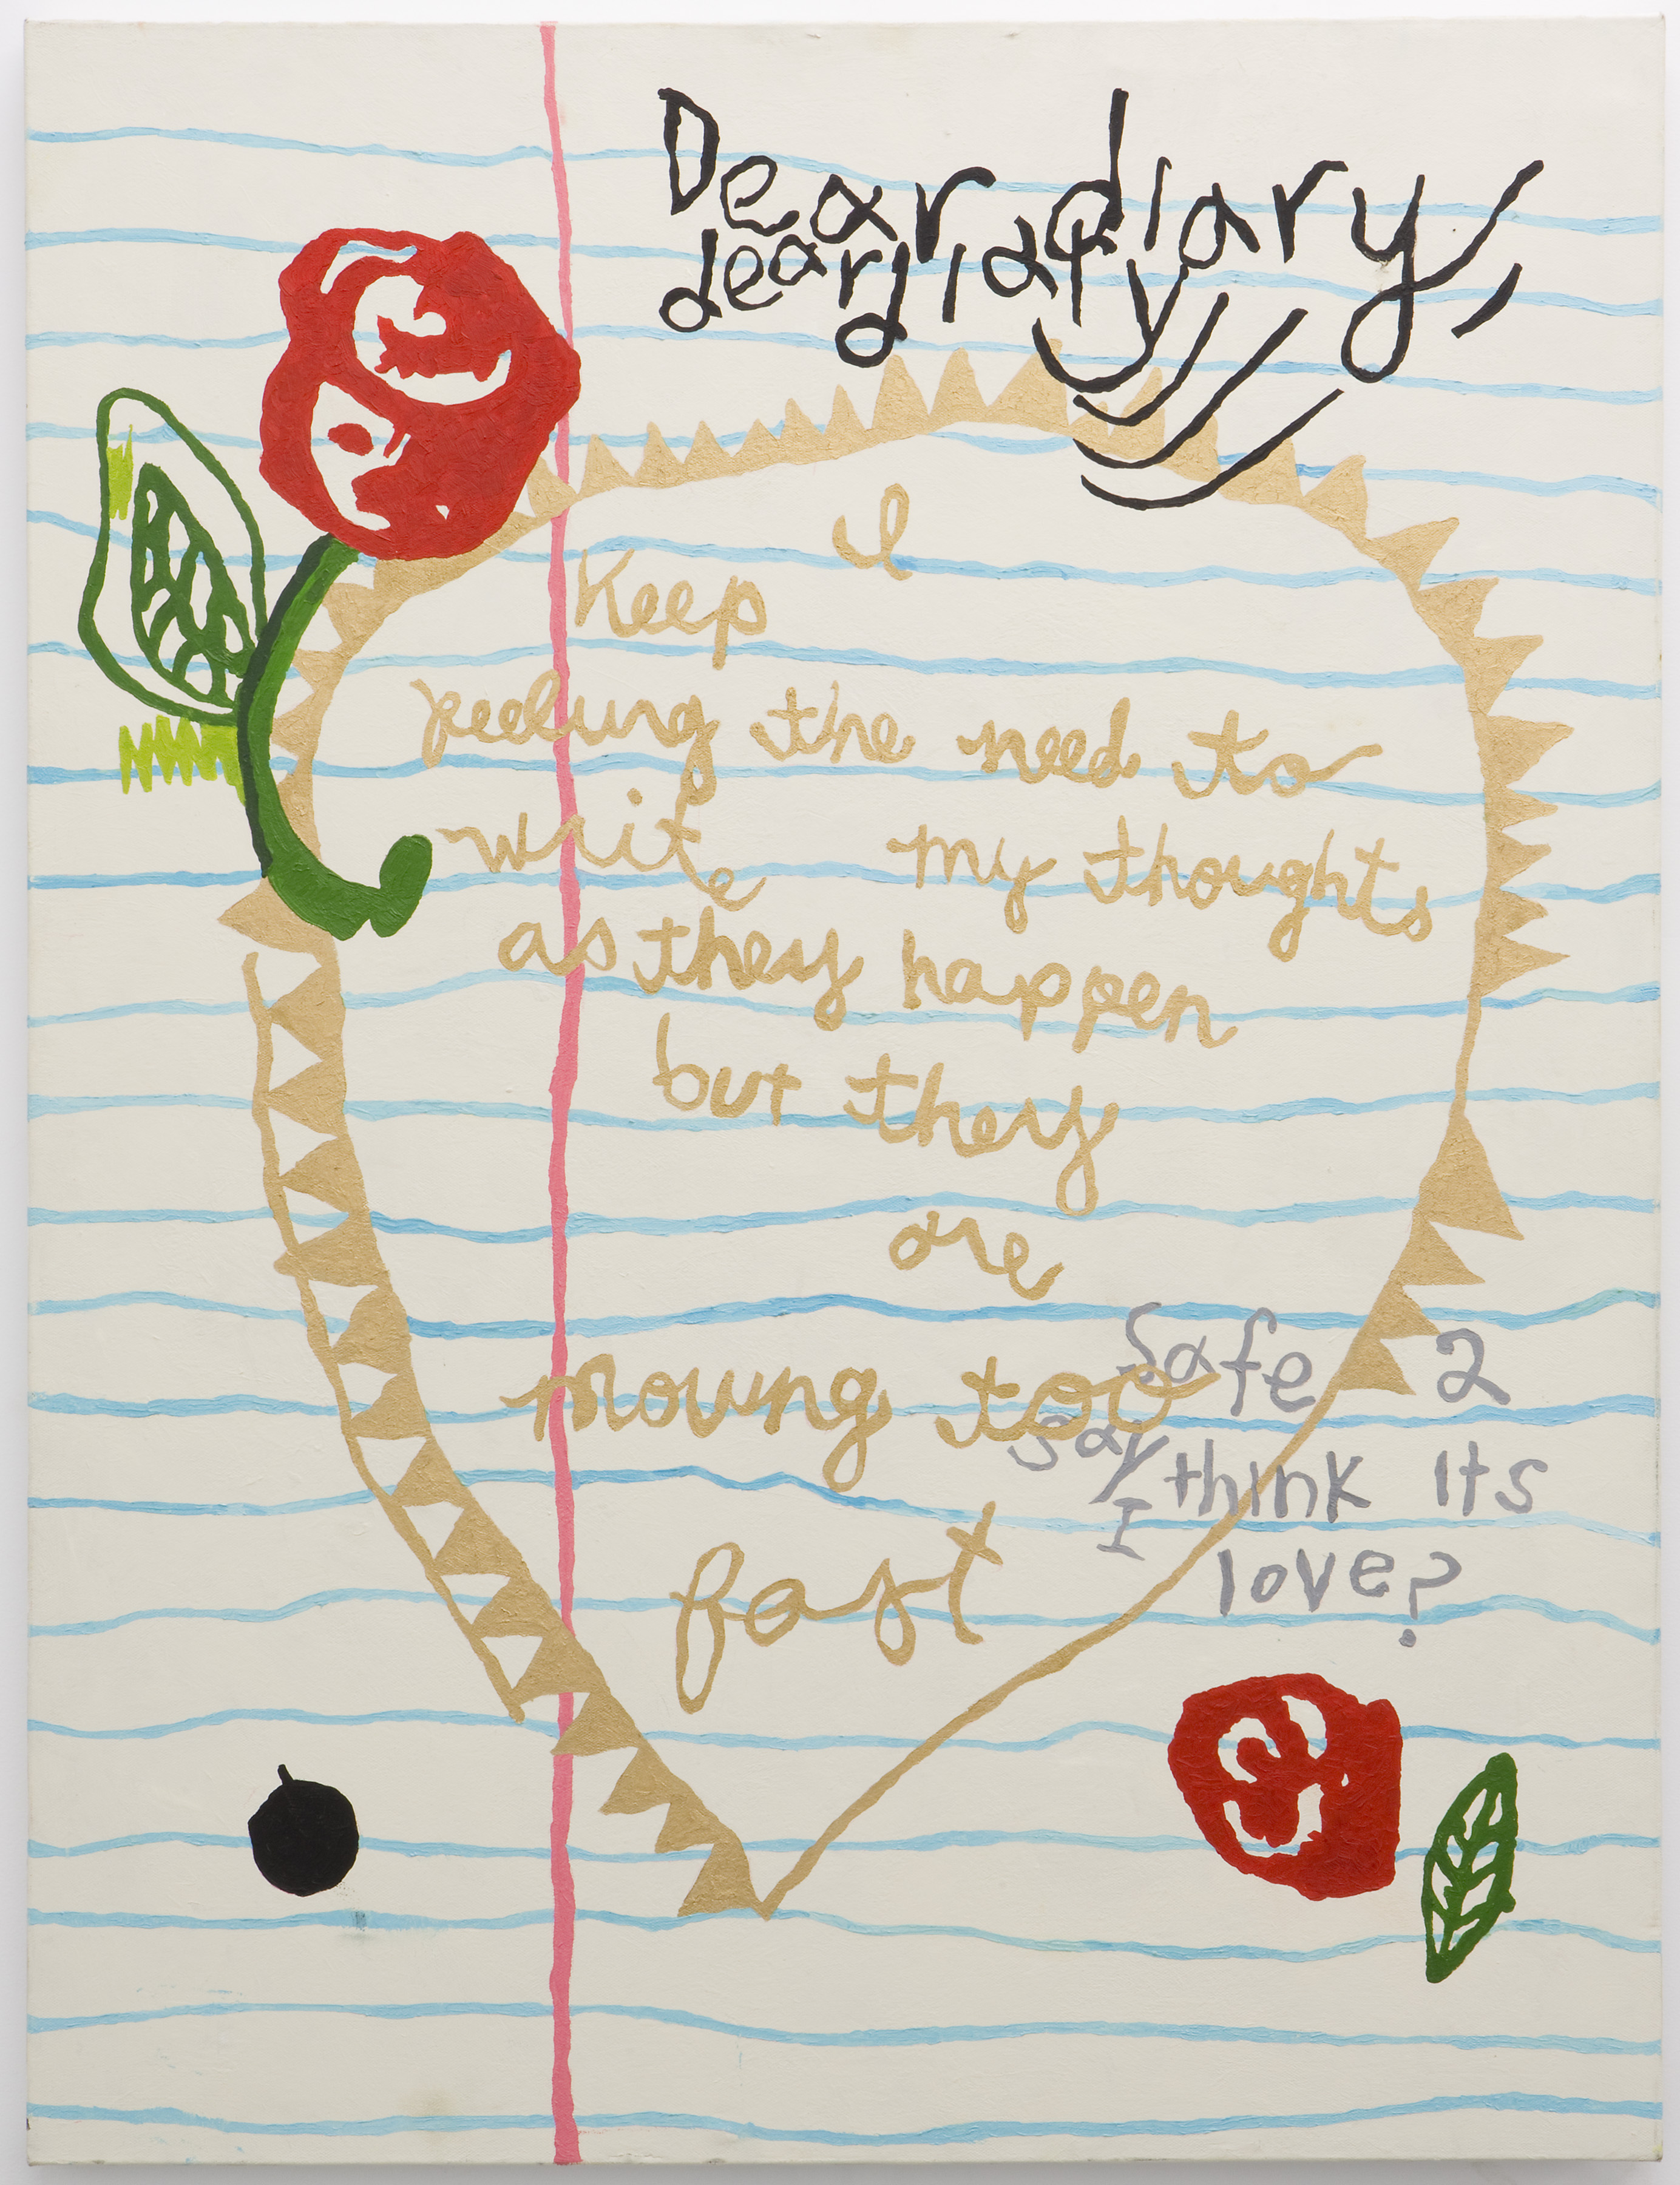 Dear diary,
dear diary,
I
Keep
feeling the need to
write my thoughts
as they happen
but they
are
moving too
fast
Safe 2
say
I think its
love?